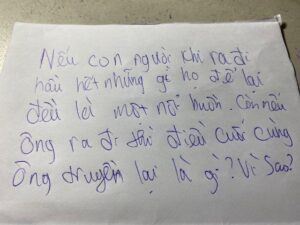 Nếu con người khi ra đi
hầu hết những gì họ để lại
đều là một nỗi buồn. Còn nếu
ông ra đi thì điều cuối cùng
ông truyền lại là gì? Vì sao?